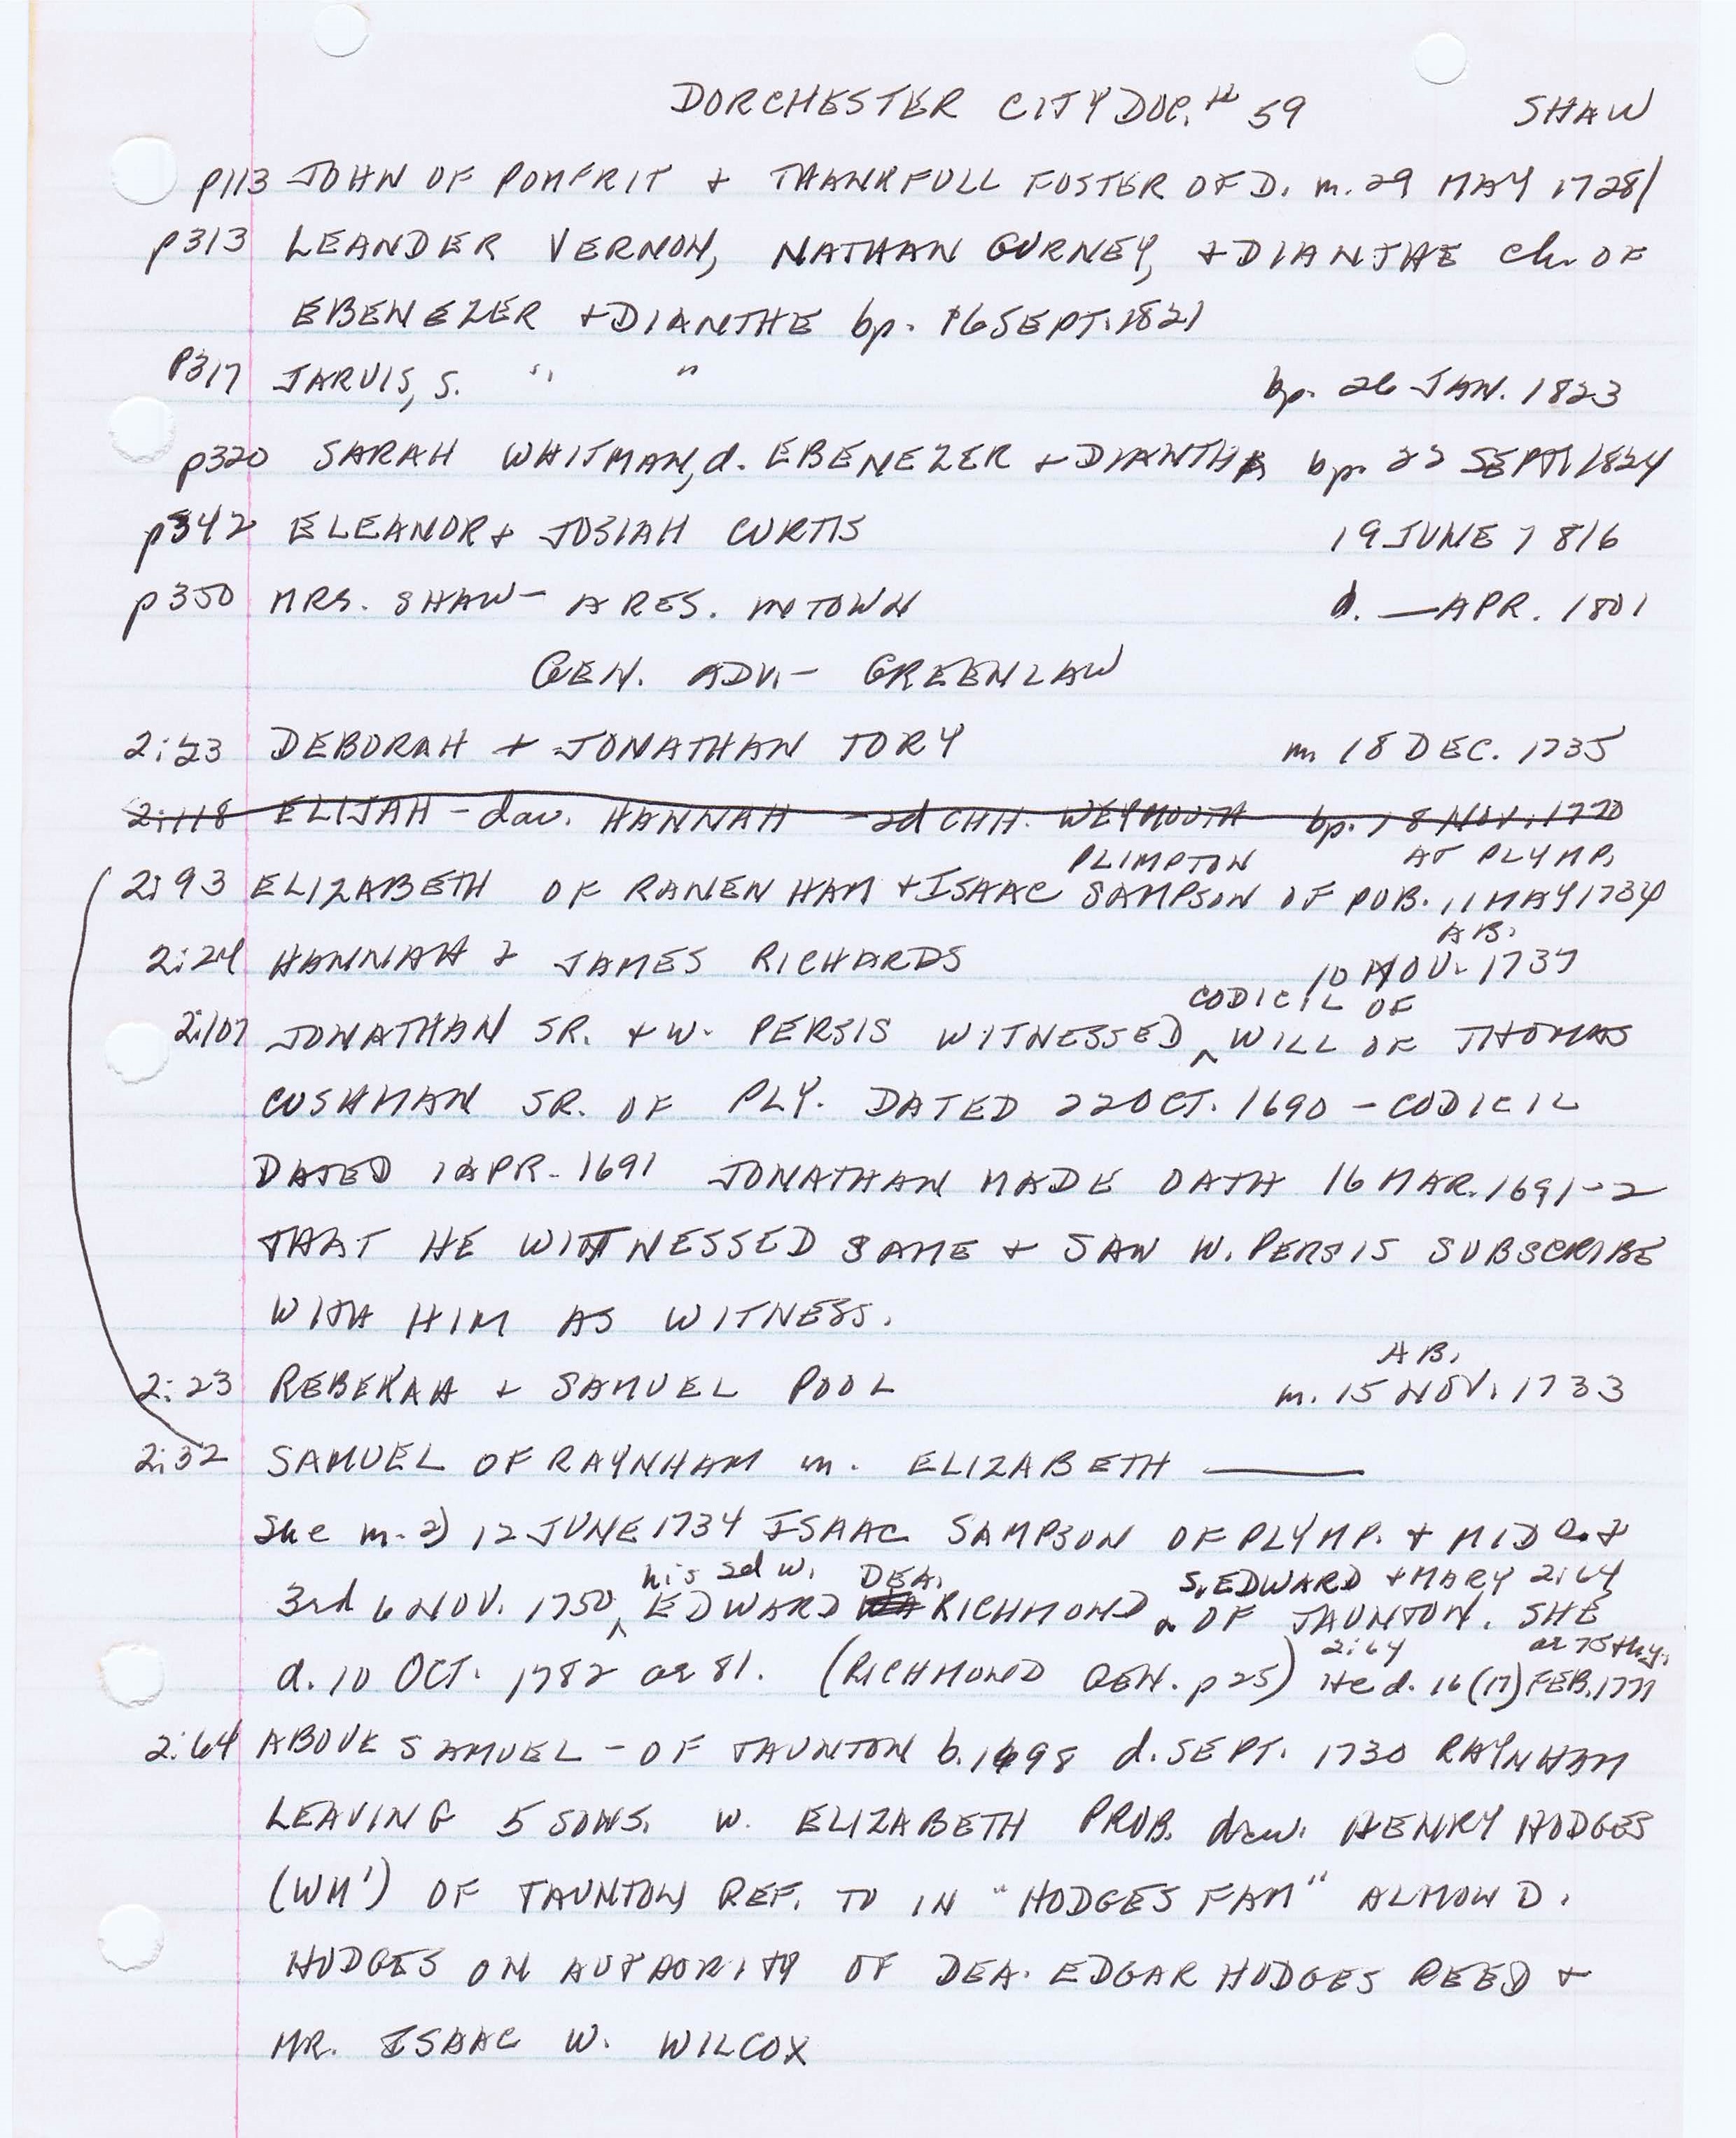 DORCHESTER CITY DOC. # 59 SHAW
p113 JOHN OF POMFRIT + THANKFULL FOSTER OF D. m. 29 MAY 1728/
p313 LEANDER VERNON, NATHAN GURNEY, + DIANTHE ch. OF
EBENEZER + DIANTHE bp. 16 SEPT. 1821
P317 JARVIS, S. " " bp. 26 JAN. 1823
p320 SARAH WHITMAN, d. EBENEZER + DIANTHA bp. 22 SEPT. 1824
p342 ELEANOR + JOSIAH CURTIS 19 JUNE 1816
p350 MRS. SHAW - A RES. IN TOWN d. — APR. 1801
GEN. ADV. - GREENLAW
2:23 DEBORAH + JONATHAN TORY m 18 DEC. 1735
2:118 ELIJAH - dau. HANNAH - 2d CHH. WEYMOUTH bp. 18 NOV. 1770
PLIMPTON AT PLYMP.
2:93 ELIZABETH OF RANENHAM + ISAAC SAMPSON OF PUB. 11 MAY 1734
AB.
2:24 HANNAH & JAMES RICHARDS 10 NOV. 1737
CODICIL OF
2:107 JONATHAN SR. + W. PERSIS WITNESSED ^ WILL OF THOMAS
CUSHMAN SR. OF PLY. DATED 22 OCT. 1690 - CODICIL
DATED 1 APR - 1691 JONATHAN MADE OATH 16 MAR. 1691-2
THAT HE WITTNESSED SAME + SAW W. PERSIS SUBSCRIBE
WITH HIM AS WITNESS.
AB.
2:23 REBEKAH + SAMUEL POOL m. 15 NOV. 1733
2:32 SAMUEL OF RAYNHAM m. ELIZABETH ———
She m. 2) 12 JUNE 1734 ISAAC SAMPSON OF PLYMP. + MID &
his 2d w. DEA. S. EDWARD + MARY 2:64
3rd 6 NOV. 1750 ^ EDWARD RICHMOND ^ OF TAUNTON. SHE
2:64 ae 75th y.
d. 10 OCT. 1782 ae 81. (RICHMOND GEN. p 25) He d. 16 (17) FEB. 1771
2:64 ABOVE SAMUEL - OF TAUNTON b. 1698 d. SEPT. 1730 RAYNHAM
LEAVING 5 SONS. W. ELIZABETH PROB. dau. HENRY HODGES
(WM') OF TAUNTON REF. TO IN "HODGES FAM" ALMON D.
HODGES ON AUTHORITY OF DEA. EDGAR HODGES REED +
MR. ISAAC W. WILCOX